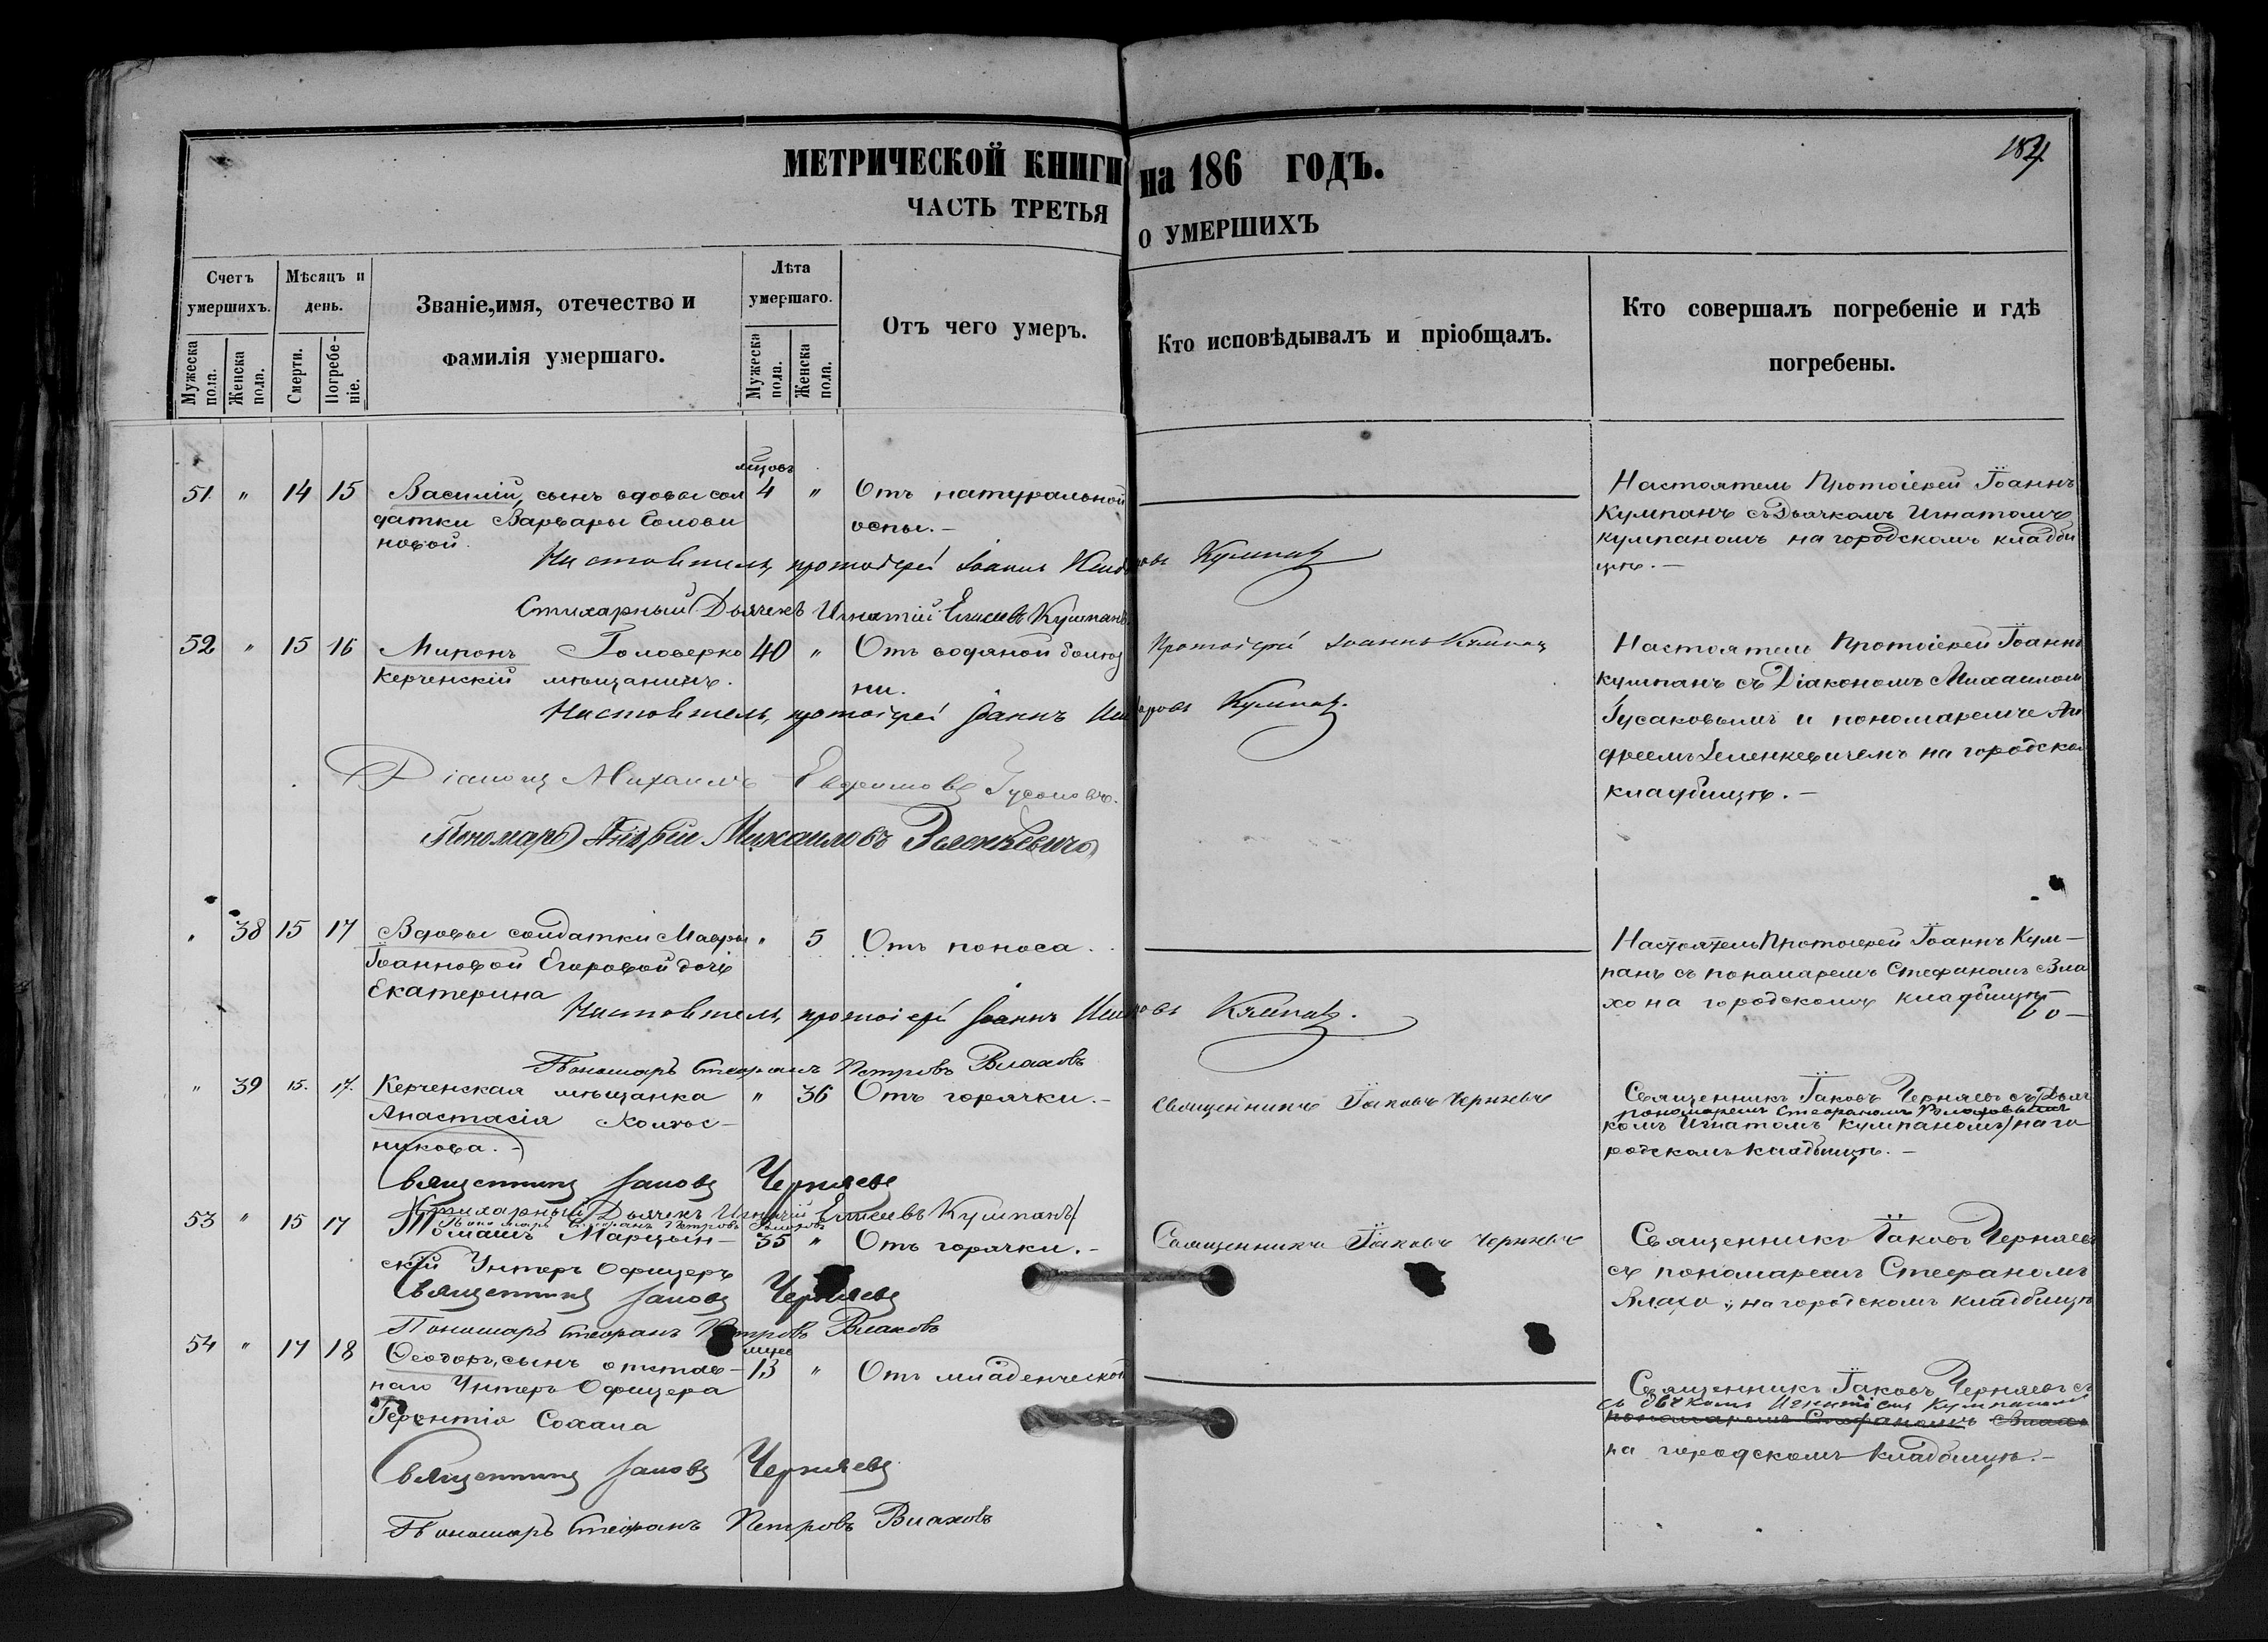 184
МЕТРИЧЕСКОЙ КНИГИ на 186 ГОДЪ.
ЧАСТЬ ТРЕТЬЯ о УМЕРШИХЪ
Счетъ умершихъ.
Мужеска пола.
Женска пола.
Мѣсяцъ и день.
Смерти.
Погребе-ніе.
Званіе,имя, отечество и
фамилія умершаго.
Лѣта умершаго.
Мужеска пола.
Женска пола.
Отъ чего умеръ.
Кто исповѣдывалъ и пріобщалъ.
Кто совершалъ погребеніе и гдѣ
погребены.
мцовъ
51 " 14 15 Василій, сынъ вдовы сол 4 " Отъ натуральной Настоятель Протоіерей Іоаннъ
датки Варвары Голови оспы.- Кумпанъ съ Дьячкомъ Игнатомъ
новой. Кумпаномъ на городскомъ кладби
щѣ.-
Настоятель, протоіерей Іоаннъ Кумпанъ
Стихарный Дьячекъ Игнатій Елисеевъ Кумпанъ
52 " 15 16 Миронъ Головерко 40 " Отъ водяной болѣз Протоіерей Іоаннъ Кумпанъ Настоятель Протоіерей Іоаннъ
Керченскій мѣщанинъ. ни. Кумпанъ съ Діакономъ Михаиломъ
Гусаковымъ и пономаремъ Ан
дреемъ Зеленкевичемъ на городско
кладбищѣ.-
Настоятель, протоіерей Іоаннъ Кумпанъ.
Діаконъ Михаилъ Гусаковъ.
Пономарь Андрей Михаиловъ Зеленкевичъ
" 38 15 17 Вдовы солдатки Мавры " 5 Отъ поноса. Настоятель Протоіерей Іоаннъ Кум-
Іоанновой Егоровой дочь панъ съ пономаремъ Стефаномъ Вла
Екатерина хо на городскомъ кладбищѣ
Настоятель, протоіерей Іоаннъ Кумпанъ.
Пономарь Стефанъ Петровъ Влаховъ
" 39 15. 17. Керченская мѣщанка " 36 Отъ горячки.- Священникъ Іаковъ Черняевъ Священникъ Іаковъ Черняевъ съ Дьяч
пономаремъ Стефаномъ Влаховымъ
Анастасія Колѣс- комъ Игнатомъ Кумпаномъ) на го
никова.- родскомъ кладбищѣ.-
Священникъ Іаковъ Черняевъ
Стихарный Дьячекъ Игнатій Елисеевъ Кумпанъ
Пономарь Стефанъ Петровъ Влаховъ
53 " 15 17 Томашъ Марцын- 35 " Отъ горячки.- Священникъ Іаковъ Черняевъ Священникъ Іаковъ Черняевъ
скій Унтеръ Офицеръ съ пономаремъ Стефаномъ
Влахо на городскомъ кладбищѣ
Священникъ Іаковъ Черняевъ
Пономарь Стефанъ Петровъ Влаховъ
54 " 17 18 Ѳеодоръ, сынъ отстав- 13 " Отъ младенческой Священникъ Іаковъ Черняевъ съ
наго Унтеръ Офицера Игнатіемъ Кумпаномъ
Терентія Сохача пономаремъ Стефаномъ Влахо
на городскомъ кладбищѣ.-
Священникъ Іаковъ Черняевъ
Пономарь Стефанъ Петровъ Влаховъ